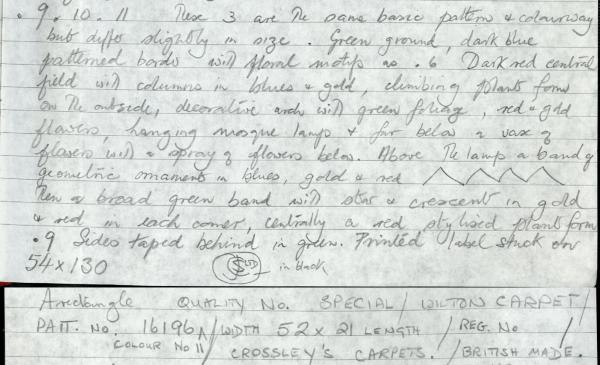 . 9. 10. 11 These 3 are the same basic pattern & colourway
but differ slightly in size. Green ground, dark blue
patterned border with floral motifs as .6 Dark red central
field with columns in blues & gold, climbing plants form
on the outside, decorative arch with green foliage, red & gold
flowers, hanging mosque lamps & far below a vase of
flowers with a spray of flowers below. Above the lamps a band of
geometric ornaments in blues, gold & red
Then a broad green band with star & crescent in gold
& red in each corner, centrally a red stylised plant form
.9 Sides taped behind in green. Printed label stuck on
54 x 130 in black
QUALITY No. SPECIAL / WILTON CARPET /
PATT. No. 16196A / WIDTH 52 x 21 LENGTH / REG. No /
COLOUR No 11 / CROSSLEY'S CARPETS. / BRITISH MADE.